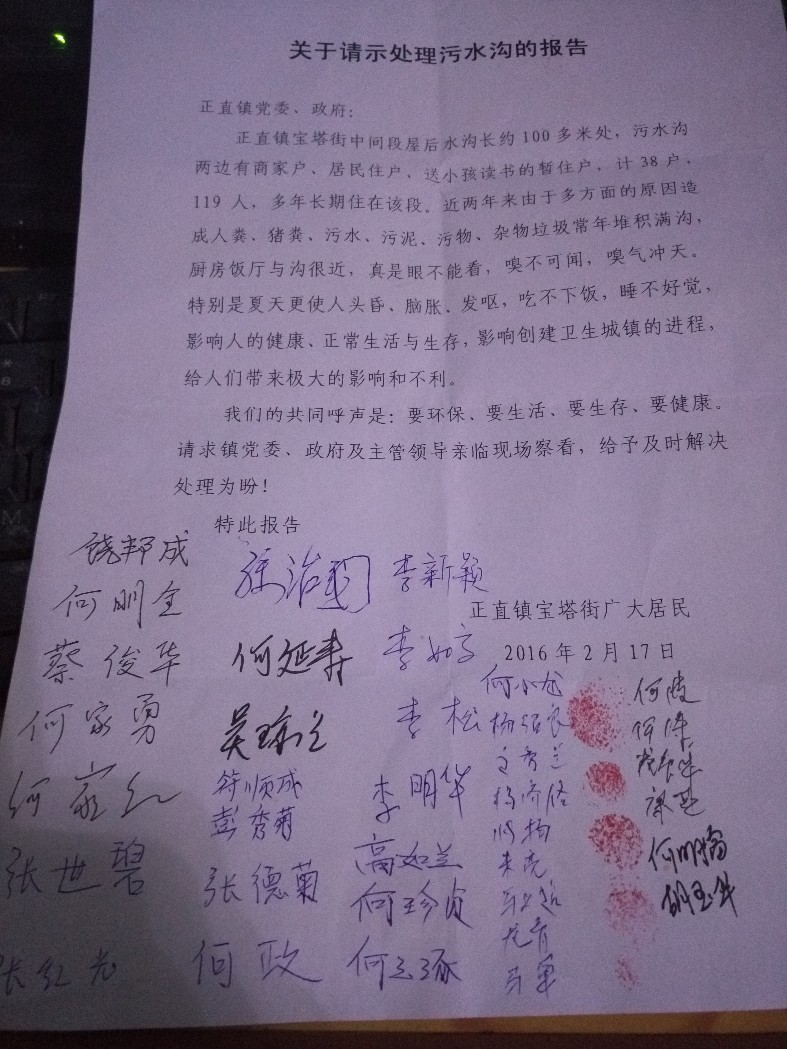 关于请示处理污水沟的报告
正直镇党委、政府：
正直镇宝塔街中间段屋后水沟长约100多米处，污水沟
两边有商家户、居民住户、送小孩读书的暂住户，计38户，
119人，多年长期住在该段。近两年来由于多方面的原因造
成人粪、猪粪、污水、污泥、污物、杂物垃圾常年堆积满沟，
厨房饭厅与沟很近，真是眼不能看，嗅不可闻，嗅气冲天。
特别是夏天更使人头昏、脑胀、发呕，吃不下饭，睡不好觉，
影响人的健康、正常生活与生存，影响创建卫生城镇的进程，
给人们带来极大的影响和不利。
我们的共同呼声是：要环保、要生活、要生存、要健康。
请求镇党委、政府及主管领导亲临现场察看，给予及时解决
处理为盼！
特此报告
正直镇宝塔街广大居民
2016年2月17日
饶邦成
何明全
蔡俊华
何家勇
何家红
张世碧
张红光
张治国
何延寿
符顺成
彭秀菊
张德菊
何政
李新颖
李松
李明华
高如兰
何珍贞
何小龙
杨绍良
文秀兰